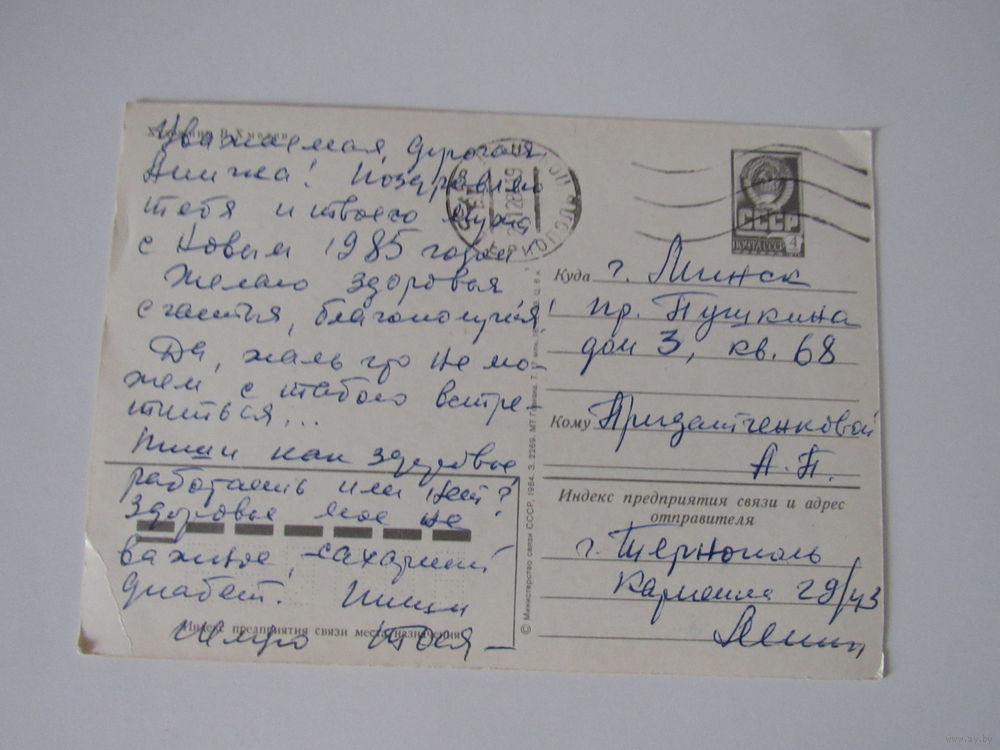 Уважаемая, дорогая
Анечка! Поздравляю
тебя и твоего мужа
с Новым 1985 годом
Желаю здоровья
счастья, благополучия!
Да, жаль что не мо
жем с тобою встре
титься...
Пиши как здоровье,
работаешь или нет?
Здоровье мое не
важное, сахарный
диабет. Пиши
Индекс предприятия связи места назначения
СССР
ПОЧТА СССР 4
Куда г. Минск
пр. Пушкина
дом 3, кв. 68
Кому Придатченковой
А. П.
Индекс предприятия связи и адрес
отправителя
г. Тернополь
29/43
© Министерство связи СССР, 1984. З. 2269. МТ Гознака.
www.ay.by